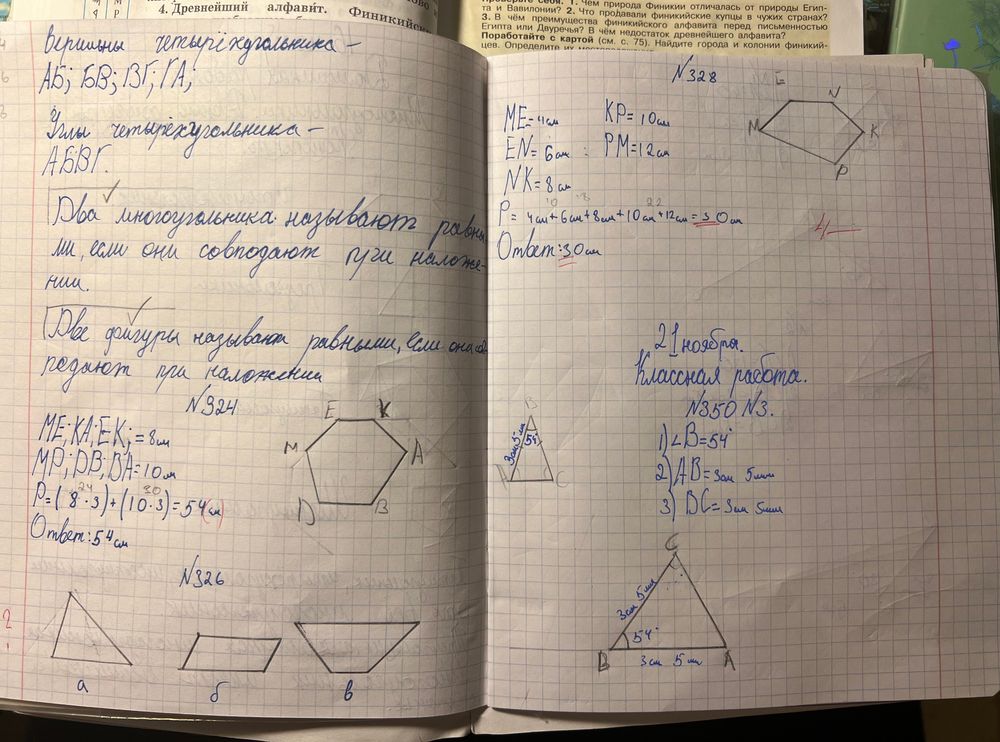 4. Древнейший алфави́т. Финикийски
1. Чем природа Финикии отличалась от природы Егип-
та и Вавилонии? 2. Что продавали финикийские купцы в чужих странах?
3. В чём преимущества финикийского алфавита перед письменностью
Египта или Двуречья? В чём недостаток древнейшего алфавита?
Поработайте с картой (см. с. 75). Найдите города и колонии финикий-
цев. Определите их
Вершины четырёхугольника –
АБ; БВ; ВГ; ГА;
Углы четырёхугольника –
АБВГ.
Два многоугольника называют равны-
ми, если они совподают при наложе-
нии.
Две фигуры называют равными, если она сов
подают при наложении
№324
ME; KA; EK; = 8см
MD; DB; BA = 10см
P = (8·3) + (10·3) = 54 (см)
24
30
Ответ: 54 см
E K
M A
D B
№326
а б в
№328
ME = 4см KP = 10см
EN = 6см PM = 12см
NK = 8см
10 18 22
P = 4см + 6см + 8см + 10см + 12см = 30см
Ответ: 30см
E N
M K
P
4
21 ноября.
Классная работа.
№350 №3.
1) ∠B = 54°
2) AB = 3см 5мм
3) BC = 3см 5мм
B
3см 5мм
54°
A C
C
3см 5мм
54°
B A
3см 5мм